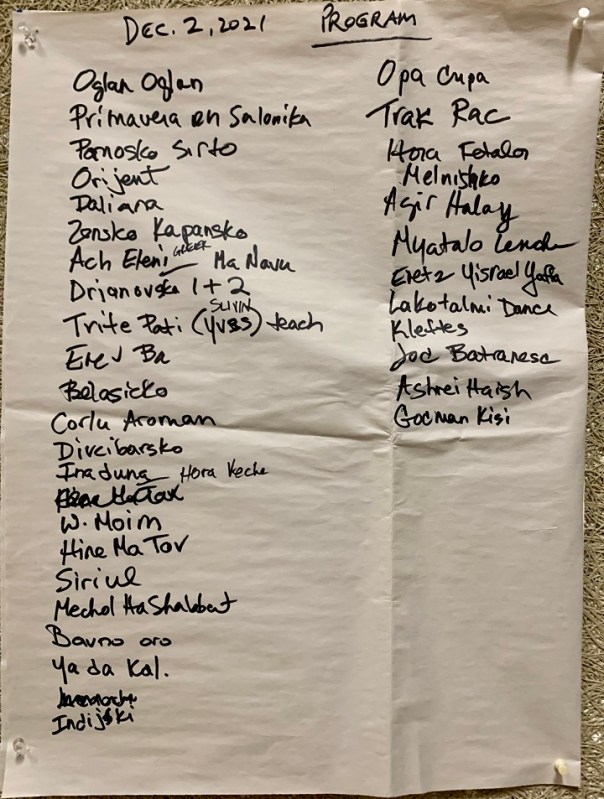 DEC. 2, 2021 PROGRAM
Oglan Oglan
Primavera en Salonika
Pornosko Sirto
Orijent
Daliana
Zensko Kapansko
Ach Eleni GREEK Ma Navu
Drjanovska 1+2
Trite Pati (YVES) SLIVIN teach
Erev Ba
Belasicko
Corlu Aroman
Divcibarsko
Inadung Hora Veche
W. Moim
Hine Ma Tov
Siriul
Mechol HaShabbat
Bavno oro
Ya da Kal.
Indijski
Opa Cupa
Trak Rac
Hora Fetalor
Melnishko
Agir Halay
Myatalo Lenche
Eretz Yisrael Yafa
Lakotalmi Dance
Kleftes
Joc Batranesc
Ashrei Haish
Gocman Kisi